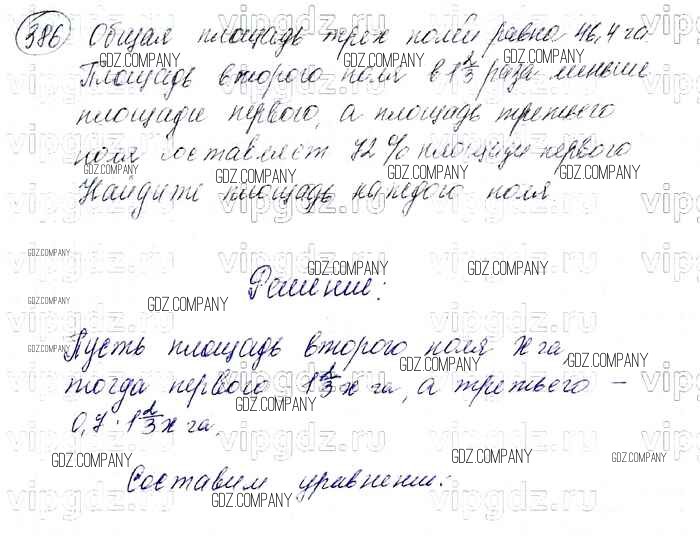 386 Общая площадь трех полей равна 46,4 га
Площадь второго поля в 1 2/3 раза меньше
площади первого, а площадь третьего
поля составляет 72 % площади первого
Найдите площадь каждого поля
Решение:
Пусть площадь второго поля x га,
тогда первого 1 2/3 x га, а третьего –
0,7 · 1 2/3 x га.
Составим уравнение:
GDZ.COMPANY
vipgdz.ru